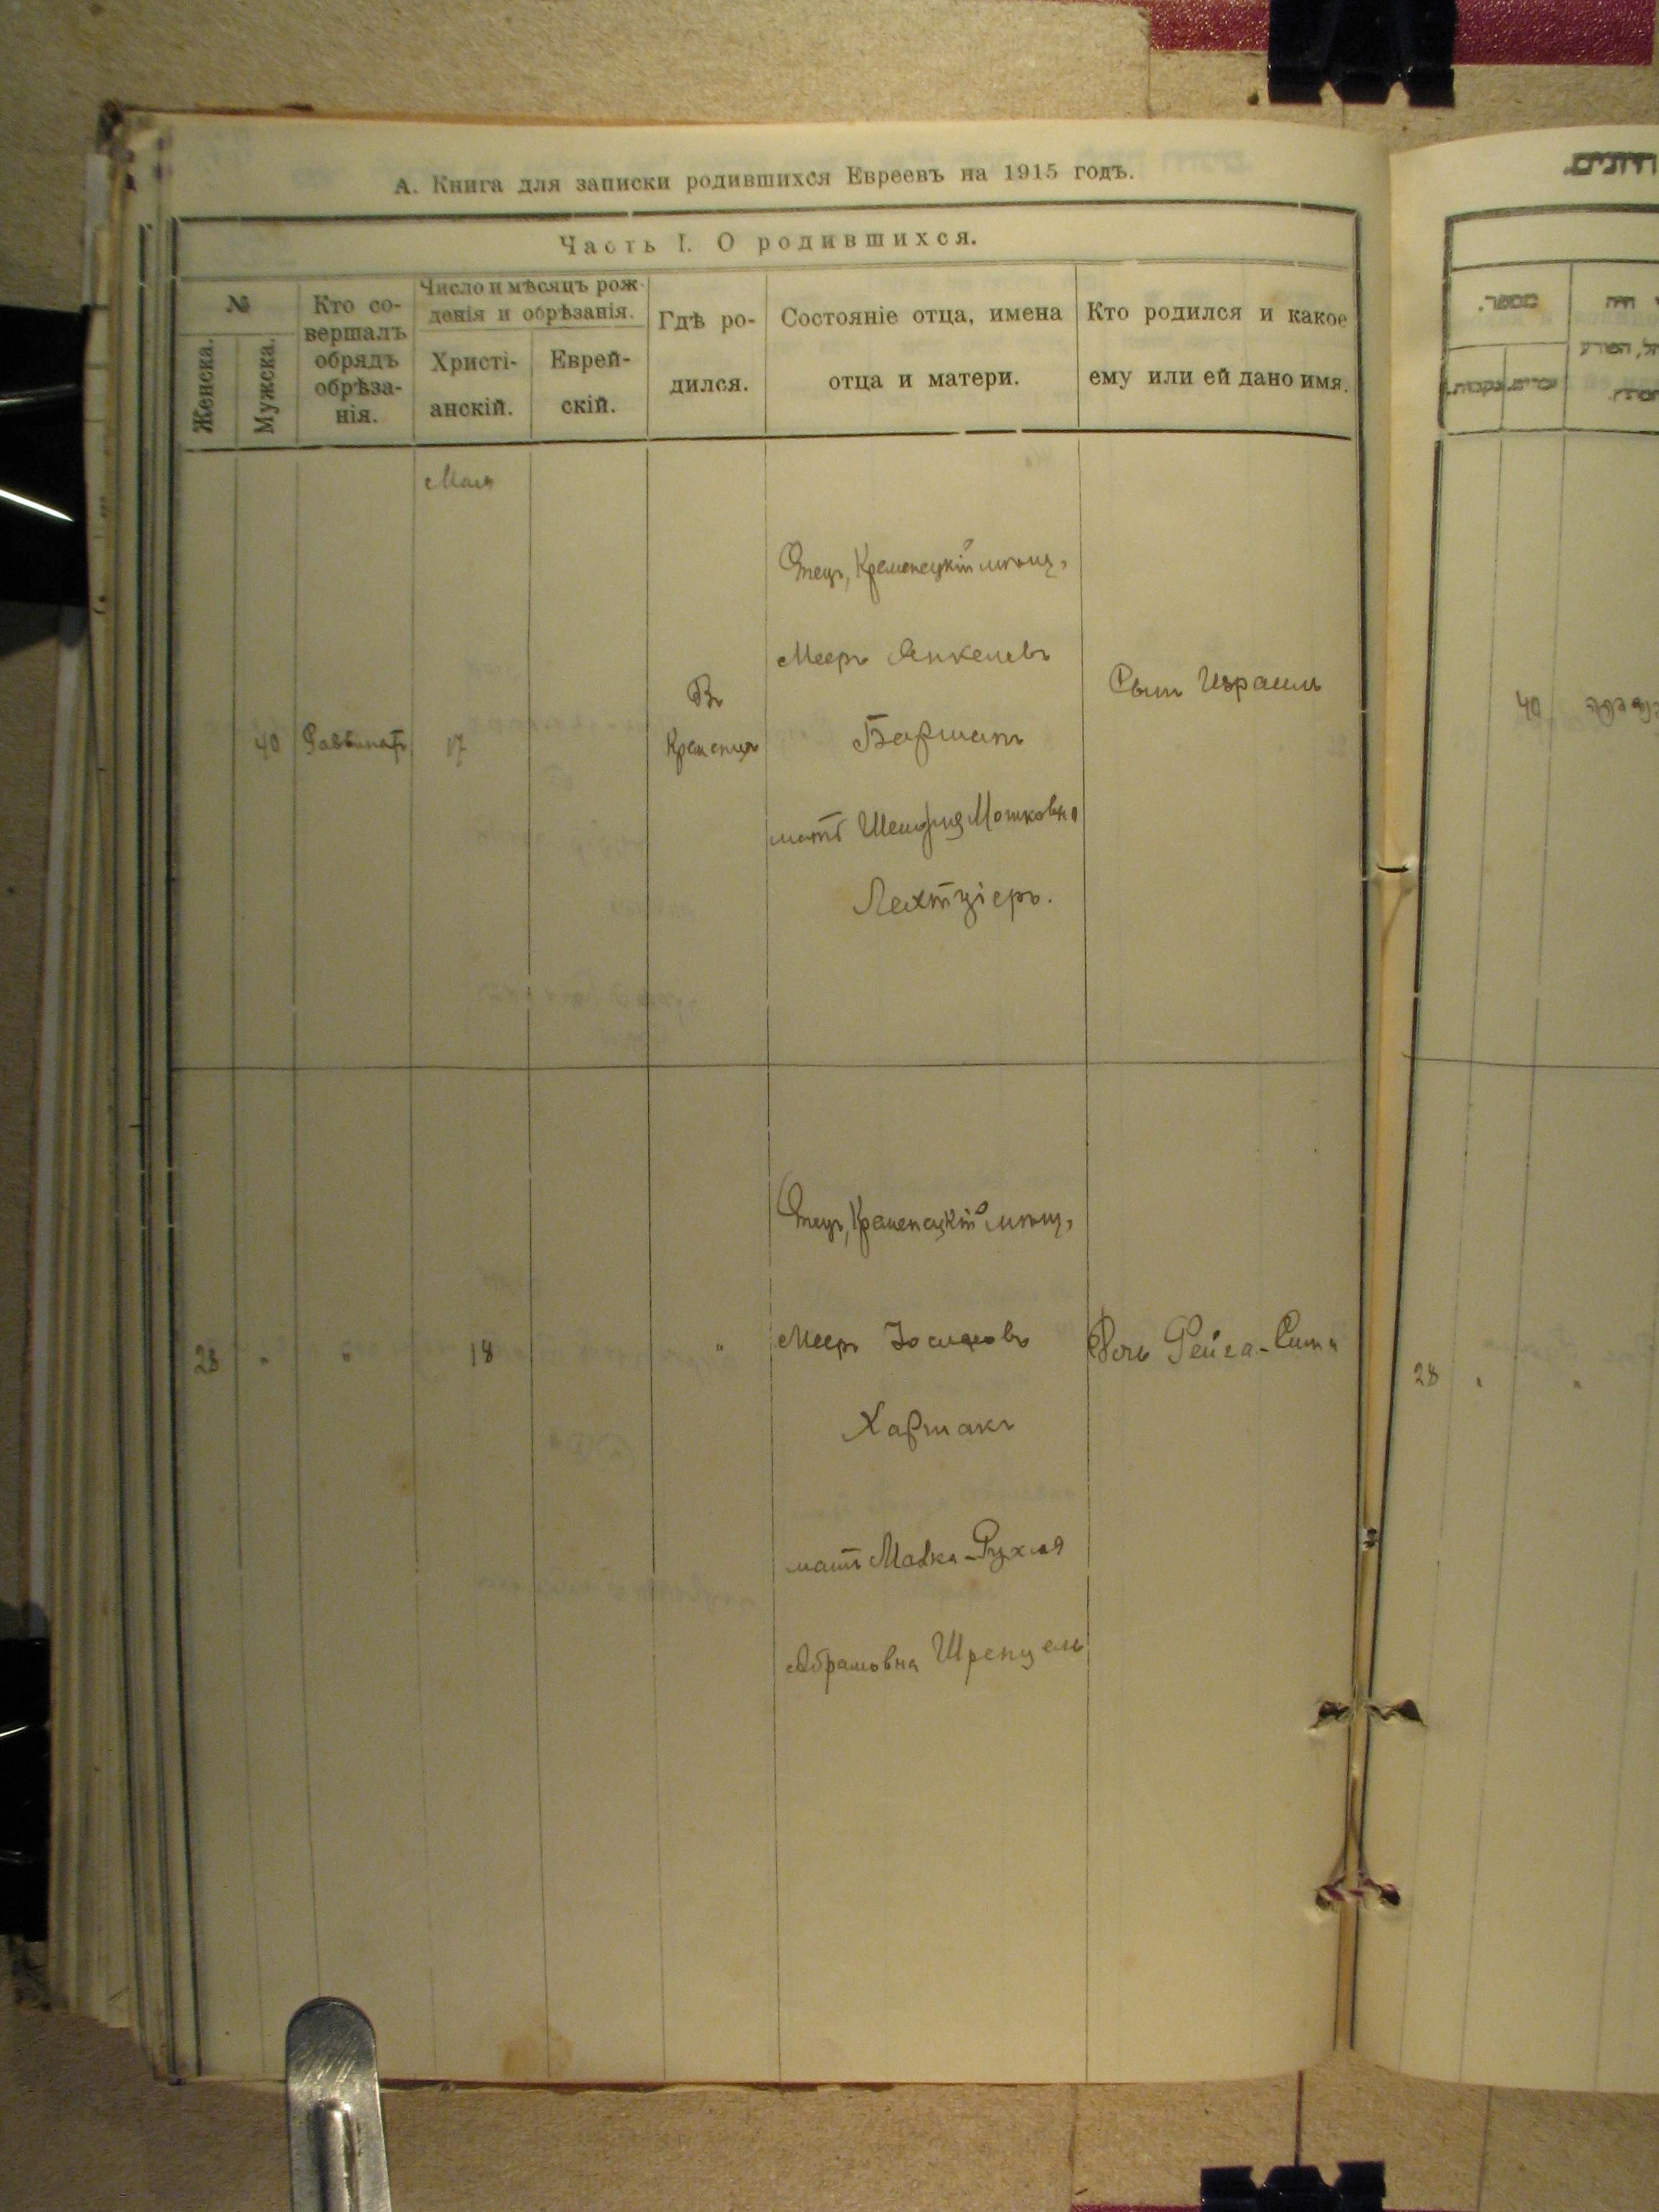 А. Книга для записки родившихся Евреевъ на 1915 годъ.
Часть I. О родившихся.
№
Женска.
Мужска.
Кто со-
вершалъ
обрядъ
обрѣза-
нія.
Число и мѣсяцъ рож-
денія и обрѣзанія.
Христі-
анскій.
Еврей-
скій.
Гдѣ ро-
дился.
Состояніе отца, имена
отца и матери.
Кто родился и какое
ему или ей дано имя.
Мая
40
17
Въ
Кременцѣ
Отецъ, Кременецкій мѣщ.
Мееръ Янкелевъ
Барматъ
мать Мошковна
Лехтціеръ.
Сынъ Израиль
28 " " 18 "
Отецъ, Кременецкій мѣщ.
Мееръ
Хармакъ
мать Малка-Рухля
Абрамовна Шренцель
Дочь Рейза-Сима
מספר.
40
28 " "